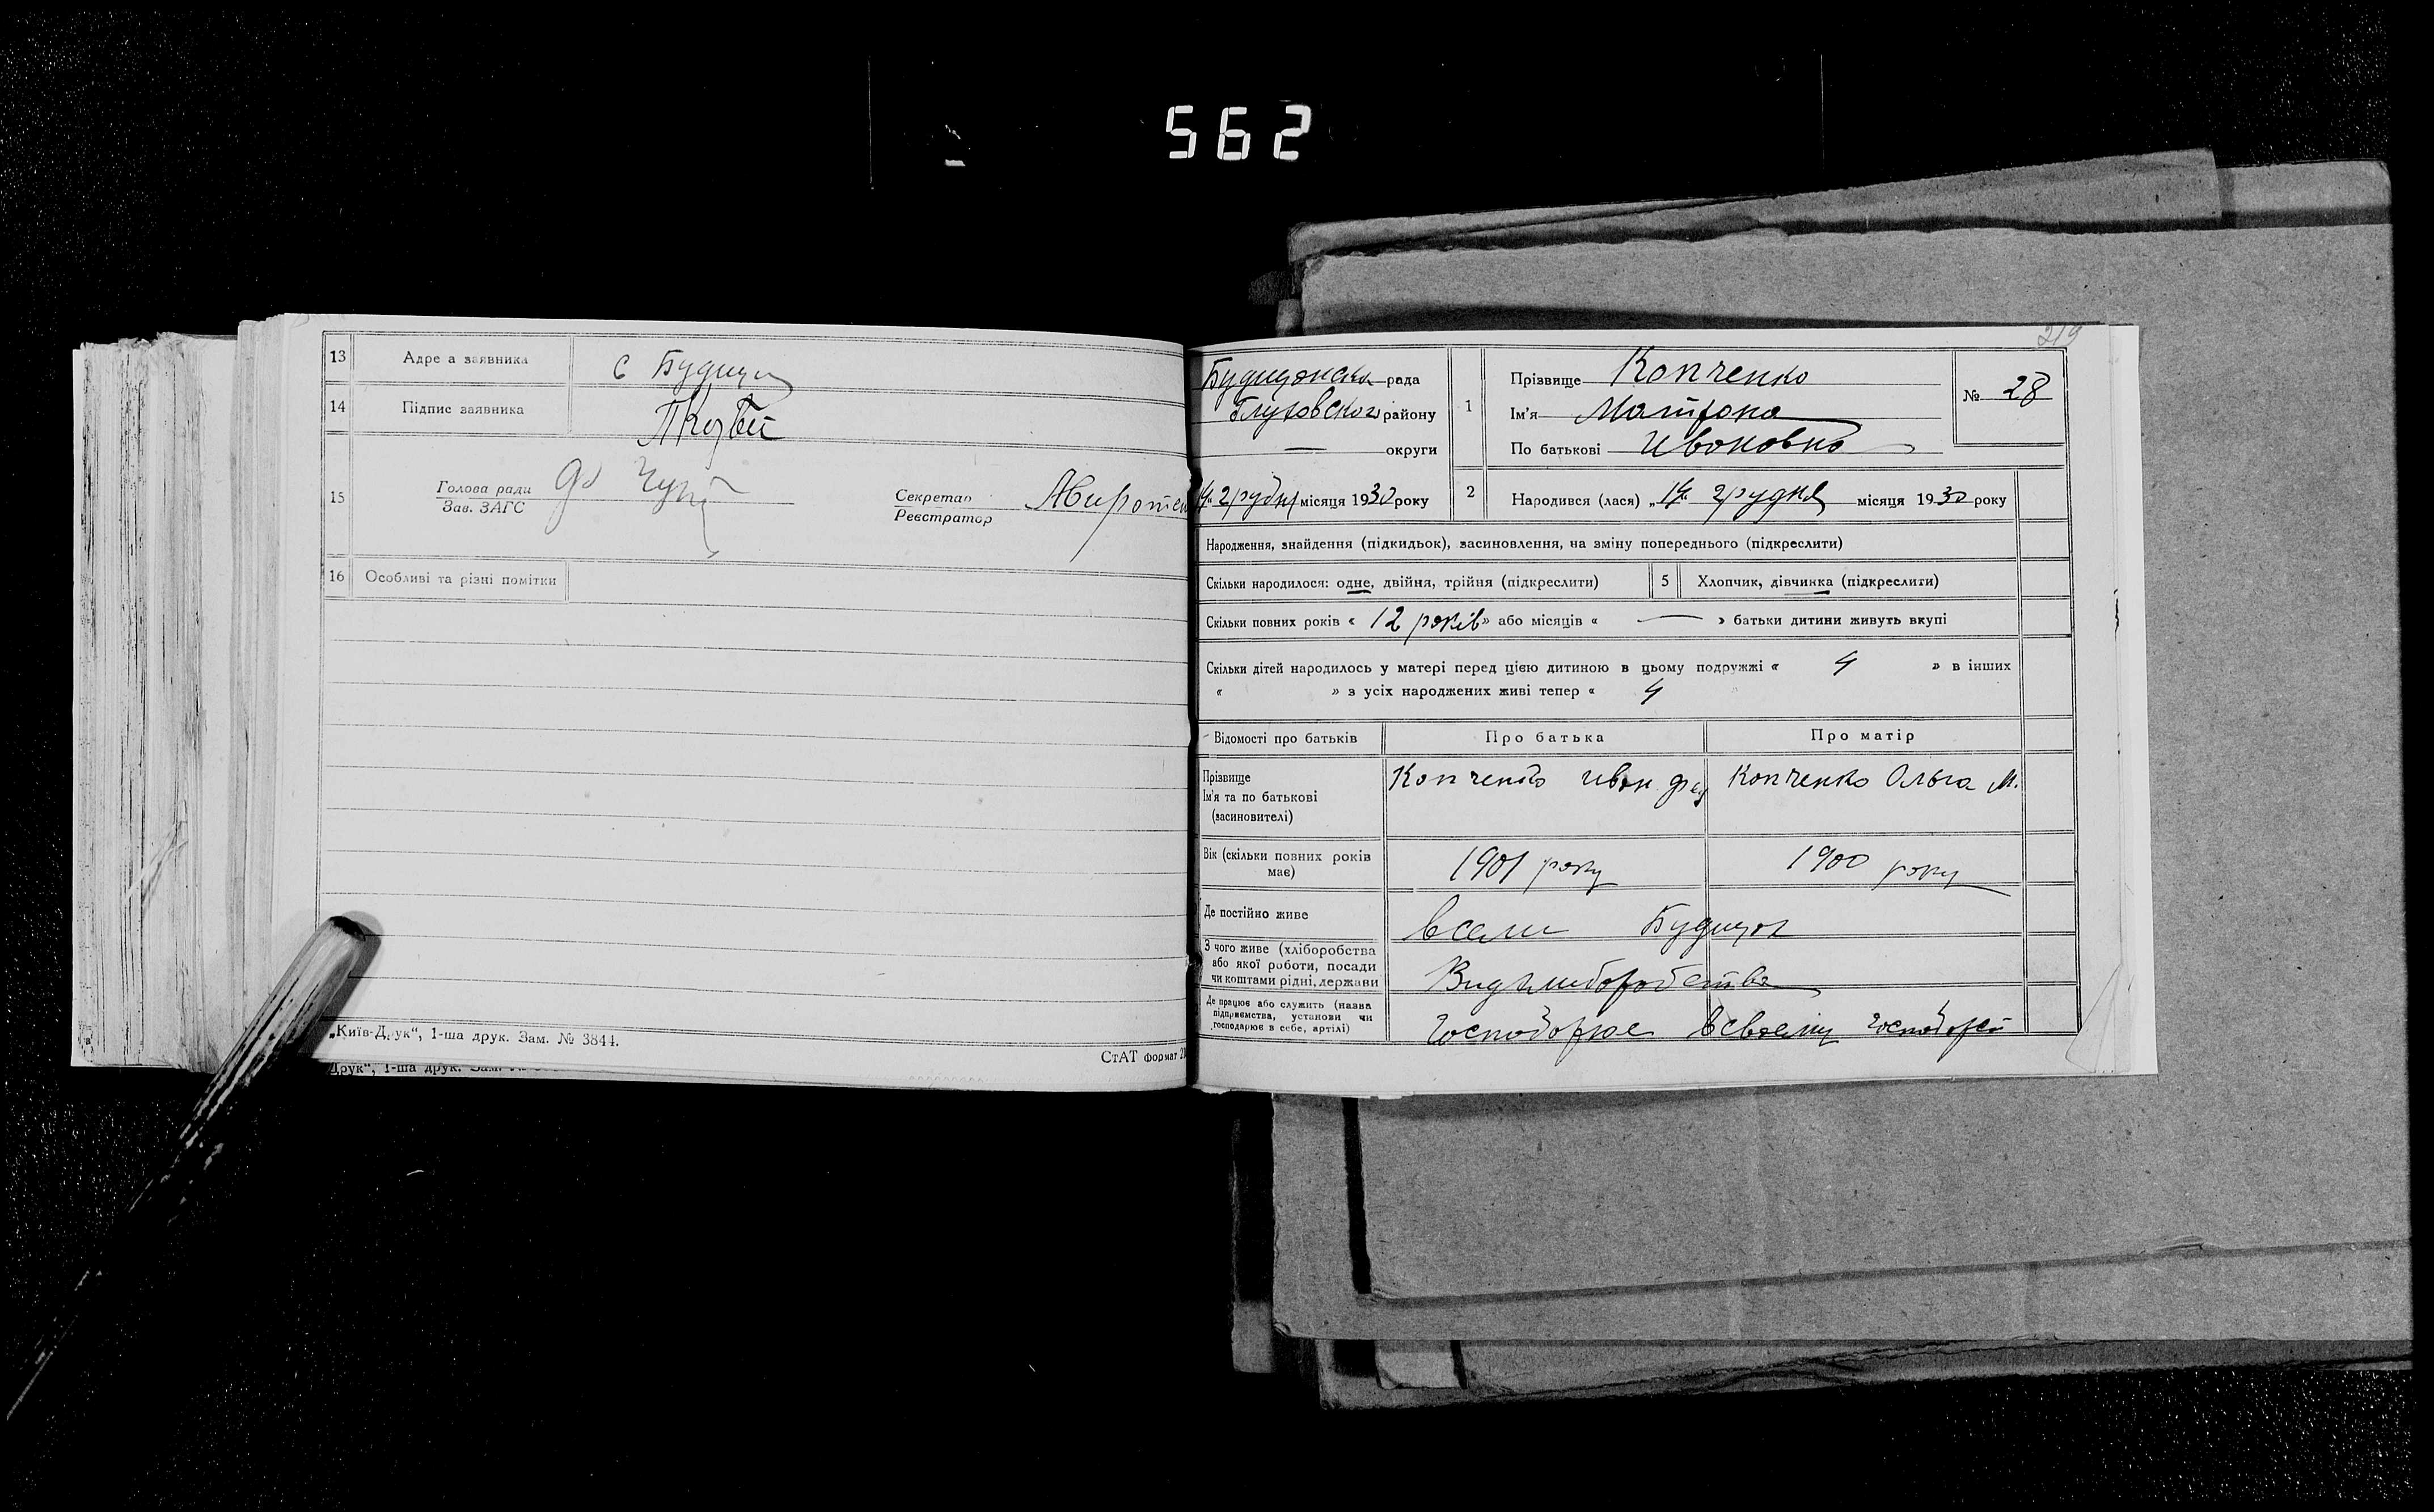 562
13 Адре а заявника с Будищи
14 Підпис заявника
15 Голова ради
Зав. ЗАГС
Секретар
Реєстратор
16 Особливі та різні помітки
„Київ-Друк“, 1-ша друк. Зам. № 3844.
СтАТ формат
Друк“, 1-ша друк. Зам.
219
рада
Глуховского району
— округи
1 Прізвище Копченко
Ім'я Матрона
По батькові Ивановна
№ 28
14 грудня місяця 1930 року
2 Народився (лася) „14 грудня місяця 1930 року
Народження, знайдення (підкидьок), засиновлення, на зміну попереднього (підкреслити)
Скільки народилося: одне, двійня, трійня (підкреслити) 5 Хлопчик, дівчинка (підкреслити)
Скільки повних років « 12 років » або місяців « — » батьки дитини живуть вкупі
Скільки дітей народилось у матері перед цією дитиною в цьому подружжі « 4 » в інших
« » з усіх народжених живі тепер « 4 »
Відомості про батьків Про батька Про матір
Прізвище
Ім'я та по батькові
(засиновителі)
Копченко Иван Фед Копченко Ольга М.
Вік (скільки повних років
має)
1901 року 1900 року
Де постійно живе в селі Будищах
З чого живе (хліборобства
або якої роботи, посади
чи коштами рідні, держави
Від хліборобства
Де працює або служить (назва
підприємства, установи чи
господарює в себе, артілі)
Господорює в своему